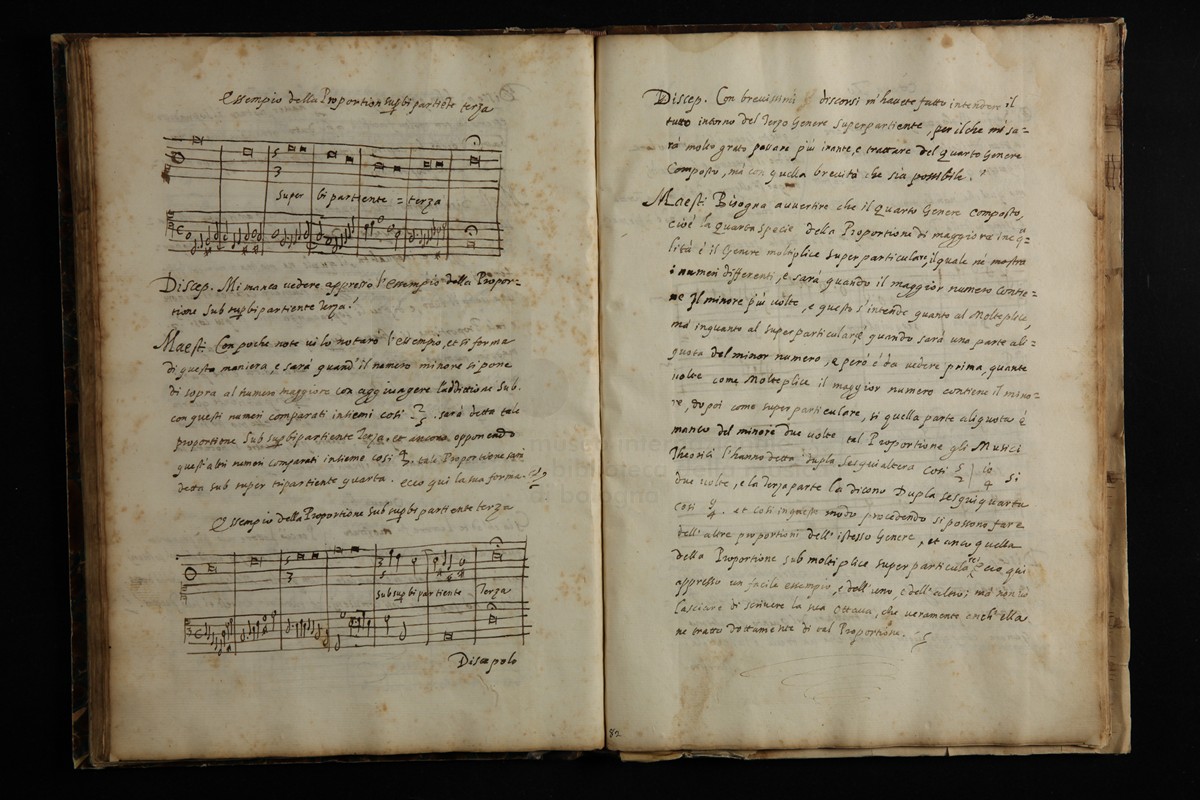 Essempio della Proportion supbi partiente terza
5
3
Super bi partiente = terza
Discep. Mi manca vedere appresso l'essempio della Propor=
tione sub supbi partiente Terza.
Maest. Con poche note vi lo notarò l'essempio, et si forma
di questa maniera, e sarà quand' il numero minore si pone
di sopra al numero maggiore con aggiungere l'addittione Sub.
con questi numeri comparati insiemi così 3/5. sarà detta tale
proportione Sub supbipartiente Terza, et ancora opponendo
quest'altri numeri comparati insieme così 4/7. tale Proportione sarà
detta sub super tripartiente quarta. ecco qui la sua forma.
Essempio della Proportione Sub supbi partiente terza
5
3
3
5
Sub supbi partiente Terza
Discepolo
Discep. Con brevissimi discorsi m'havete fatto intendere il
tutto intorno del Terzo Genere Superpartiente, per il che mi sa=
rà molto grato passare più inante, e trattare del Quarto Genere
Composto, mà con quella brevità che sia possibile.
Maest. Bisogna avvertire che il Quarto Genere Composto,
cioè la Quarta specie della Proportione di maggiora inequa=
lità è il Genere moltiplice superparticulare, il quale ne mostra
i numeri differenti, e sarà quando il maggior numero contie=
ne il minore più volte, e questo s'intende quanto al Molteplice,
mà inquanto al superparticulare quando sarà una parte ali=
quota del minor numero, e però è da vedere prima, quante
volte come Molteplice il maggior numero contiene il mino=
re, dopoi come superparticulare, si quella parte aliquota è
manco del minore due volte tal Proportione gli Musici
Theorici l'hanno detta Dupla sesquialtera così 5/2 | 10/4 si
due volte, e la Terza parte la dicono Dupla sesquiquarta
così 9/4. et così in questo modo procedendo si possono fare
dell'altre proportioni dell'istesso Genere, et anco quella
della Proportione sub moltiplice superparticulare. Ecco qui
appresso un facile essempio, e dell'uno, e dell'altro; mà non vò
lasciare di scrivere la sua Ottava, che veramente anch'ella
ne tratta dottamente di tal Proportione.
82